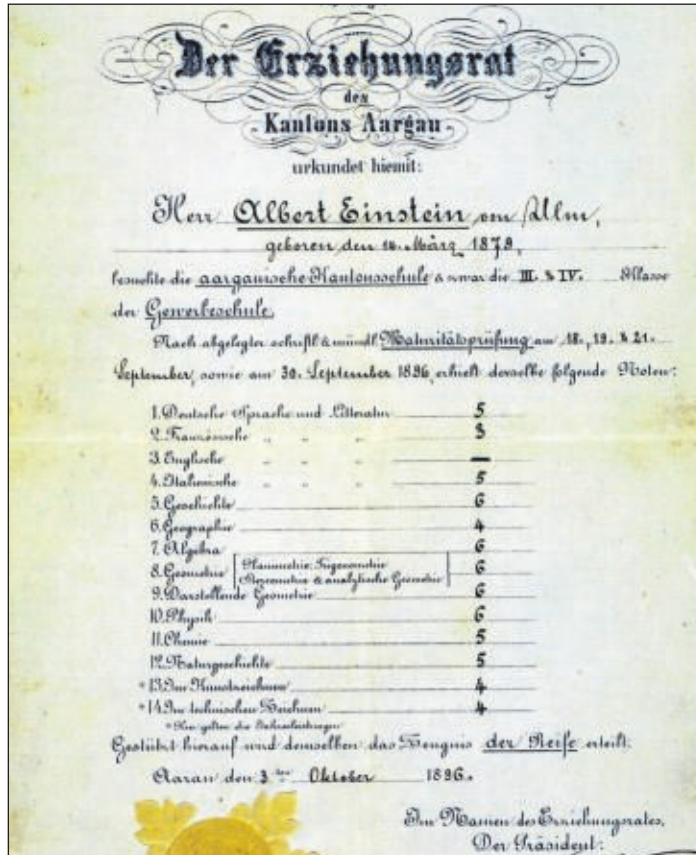 Der Erziehungsrat
des
Kantons Aargau
urkundet hiemit:
Herr Albert Einstein von Ulm,
geboren den 14. März 1879,
besuchte die aargauische Kantonsschule & zwar die III. & IV. Klasse
der Gewerbeschule.
Nach abgelegter schriftl. & mündl. Maturitätsprüfung am 18., 19. & 21.
September, sowie am 30. September 1896, erhielt derselbe folgende Noten:
1. Deutsche Sprache und Litteratur 5
2. Französische " " " 3
3. Englische " " " —
4. Italienische " " " 5
5. Geschichte 6
6. Geographie 4
7. Algebra 6
8. Geometrie Planimetrie, Trigonometrie
Stereometrie & analytische Geometrie 6
9. Darstellende Geometrie 6
10. Physik 6
11. Chemie 5
12. Naturgeschichte 5
* 13. Im Kunstzeichnen 4
* 14. Im technischen Zeichnen 4
* Hier gelten die Jahresleistungen
Gestützt hierauf wird demselben das Zeugnis der Reife erteilt.
Aarau den 3ten Oktober 1896.
Im Namen des Erziehungsrates,
Der Präsident: